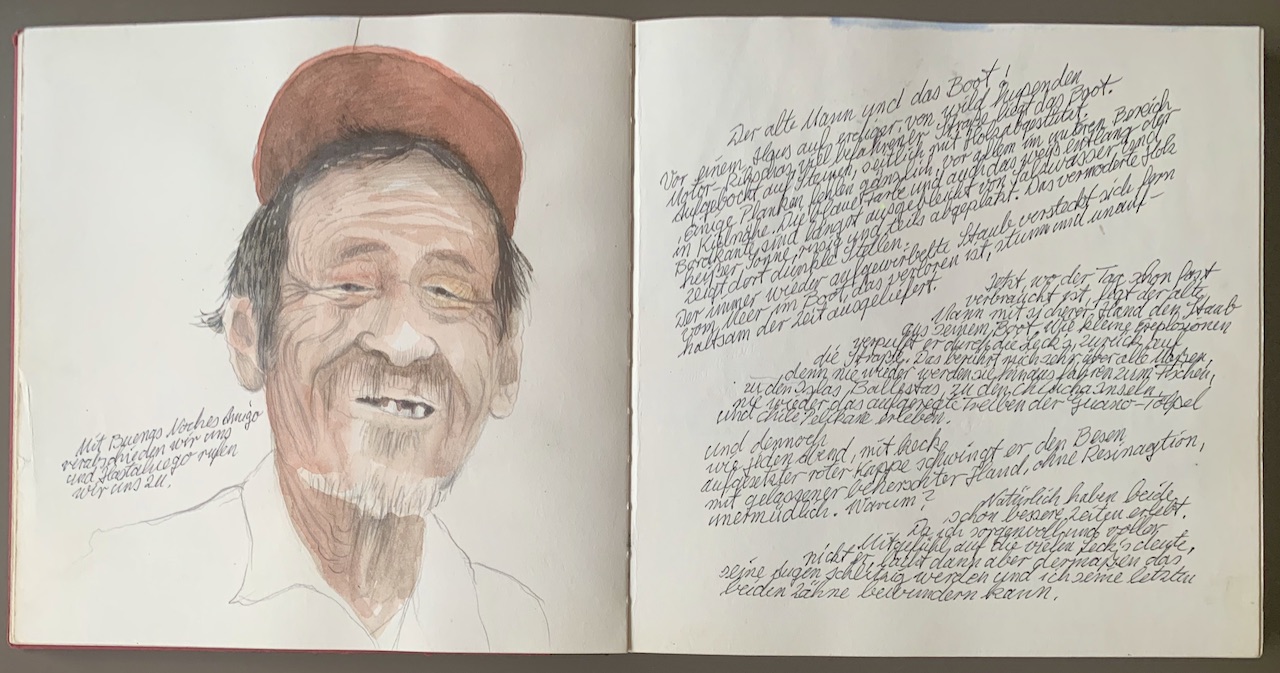 Mit Buenos Noches Amigo
verabschieden wir uns
und Hastaluego rufen
wir uns zu.
Der alte Mann und das Boot!
Vor einem Haus auf erdiger, von wild hupenden
Motor-Rikschas viel befahrener Straße liegt das Boot.
Aufgebockt auf Steinen, seitlich mit Holz abgestützt.
Einige Planken fehlen gänzlich, vor allem im unteren Bereich
in Kielnähe. Die blaue Farbe und auch das weiß entlang der
Bordkante, sind längst ausgebleicht von Salzwasser und
heißer Sonne, rissig und teils abgeplatzt. Das vermoderte Holz
zeigt dort dunkle Stellen.
Der immer wieder aufgewirbelte Staub versteckt sich fern
vom Meer im Boot, das verloren ist, stumm und unauf-
haltsam der Zeit ausgeliefert.
Jetzt, wo der Tag schon fast
verbraucht ist, fegt der alte
Mann mit sicherer Hand den Staub
aus seinem Boot. Wie kleine Explosionen
verpufft er durch die Leck's zurück auf
die Straße. Das berührt mich sehr, über alle Massen,
denn nie wieder werden sie hinaus fahren zum Fischen,
zu den Islas Ballestas, zu den Chinchainseln,
nie wieder das aufgeregte Treiben der Guano-Tölpel
und Chile Pelikane erleben.
Und dennoch
wie jeden Abend, mit keck
aufgesetzter roter Kappe schwingt er den Besen
mit gelassener beherschter Hand, ohne Resinagtion,
unermüdlich. Warum?
Natürlich haben beide
schon bessere Zeiten erlebt.
Da ich sorgenvoll und voller
Mitgefühl, auf die vielen Leck's deute,
nickt er, lacht dann aber dermaßen das
seine Augen schlitzig werden und ich seine letzten
beiden Zähne bewundern kann.